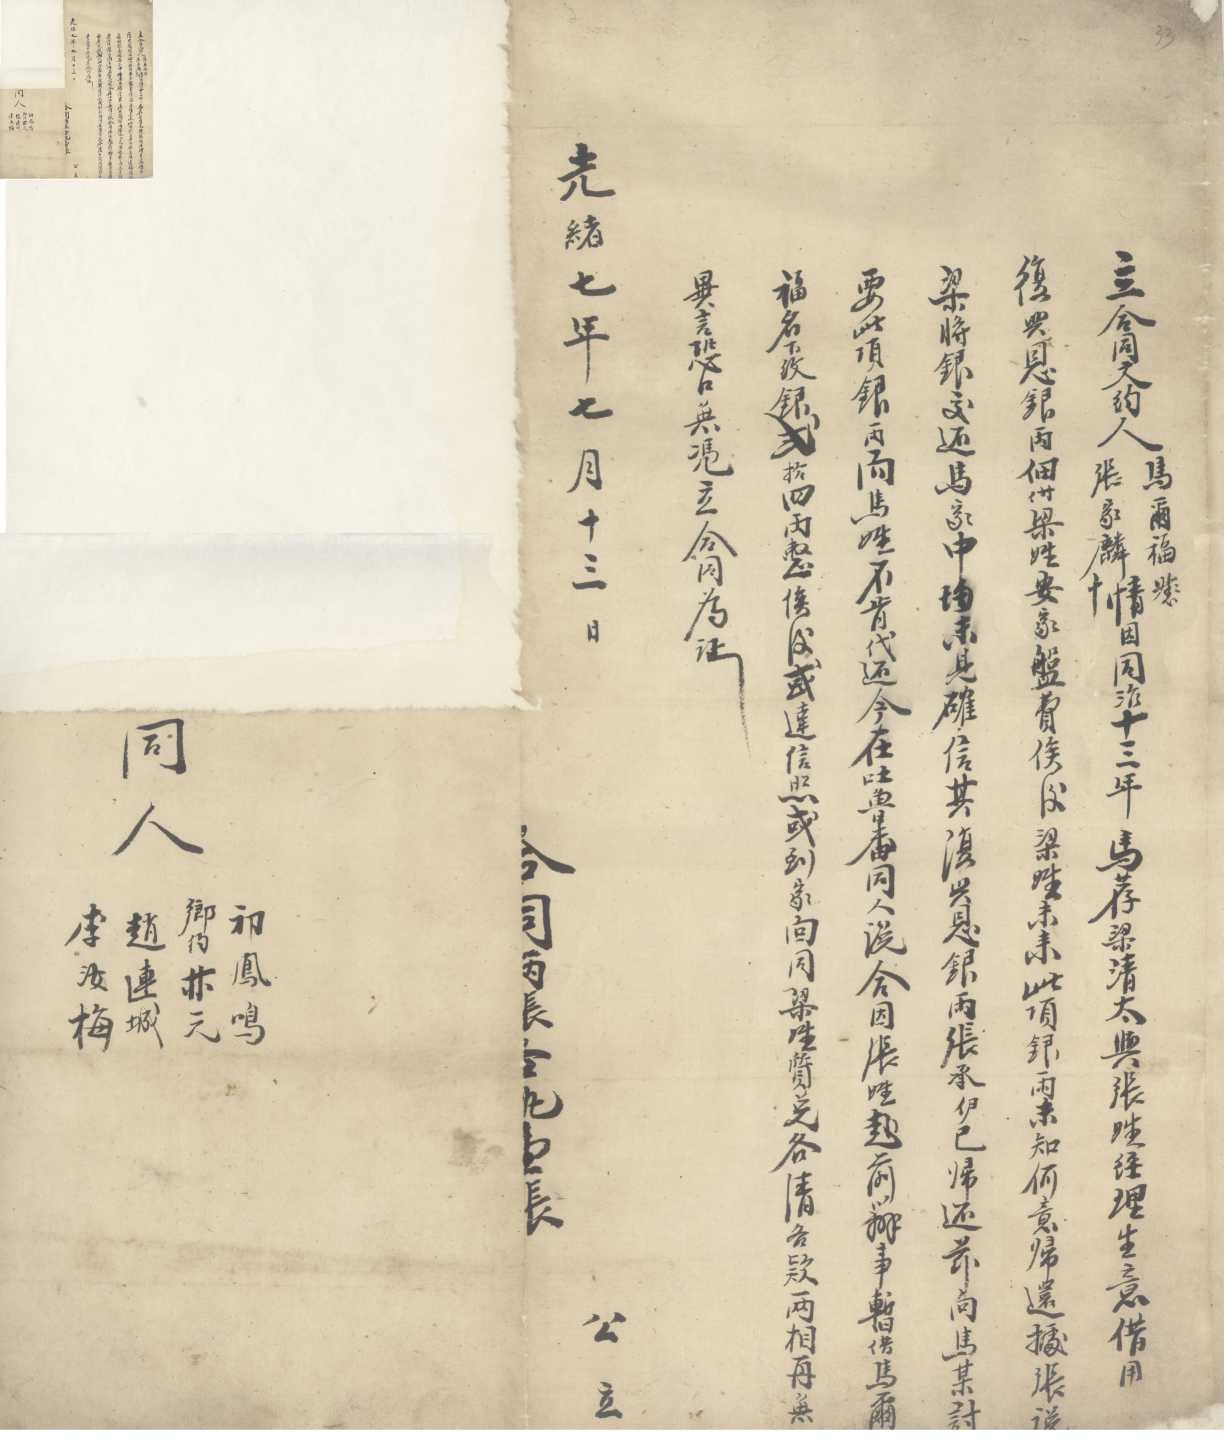 33
立合同文約人馬爾福
張家麟 情因同治十三年馬荐梁清太與張姓經理生意借用
復興恩銀兩佃 梁姓安家盤費俟後梁姓未来此項銀兩未知何意歸還據張說
梁将銀交還馬家中均未見確信其復興恩銀兩張承伊已歸还萘向馬某討
要此項銀兩而馬姓不肯代还今在吐魯番同人說合因張姓赴前辦事暫借馬爾
福名下紋銀弍拾四兩整俟後或達信照或到家面同梁姓質兑各清各欵两相再無
異言恐口無憑立合同為証
光緒七年七月十三日
公立
合同两張合
同人
初鳳鳴
鄉約 林元
趙連城
李汝梅